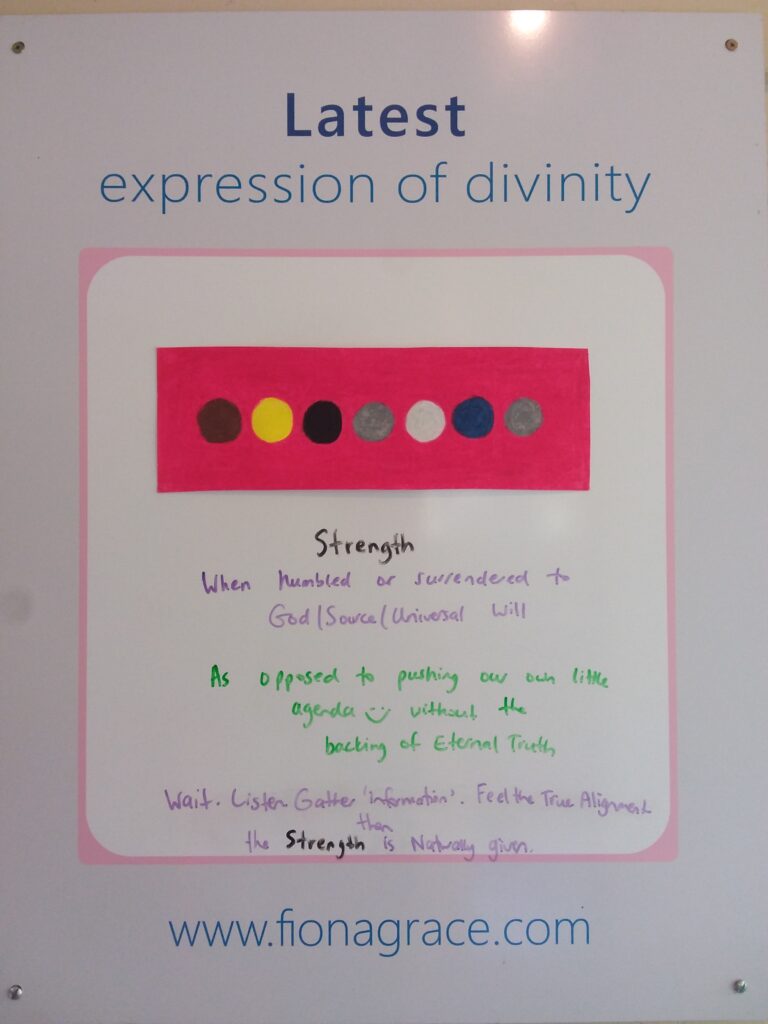 Latest
expression of divinity
Strength
When humbled or surrendered to
God/Source/Universal Will
As opposed to pushing our own little
agenda without the
backing of Eternal Truth
Wait. Listen. Gather 'information'. Feel the True Alignment
then
the Strength is Naturally given.
www.fionagrace.com